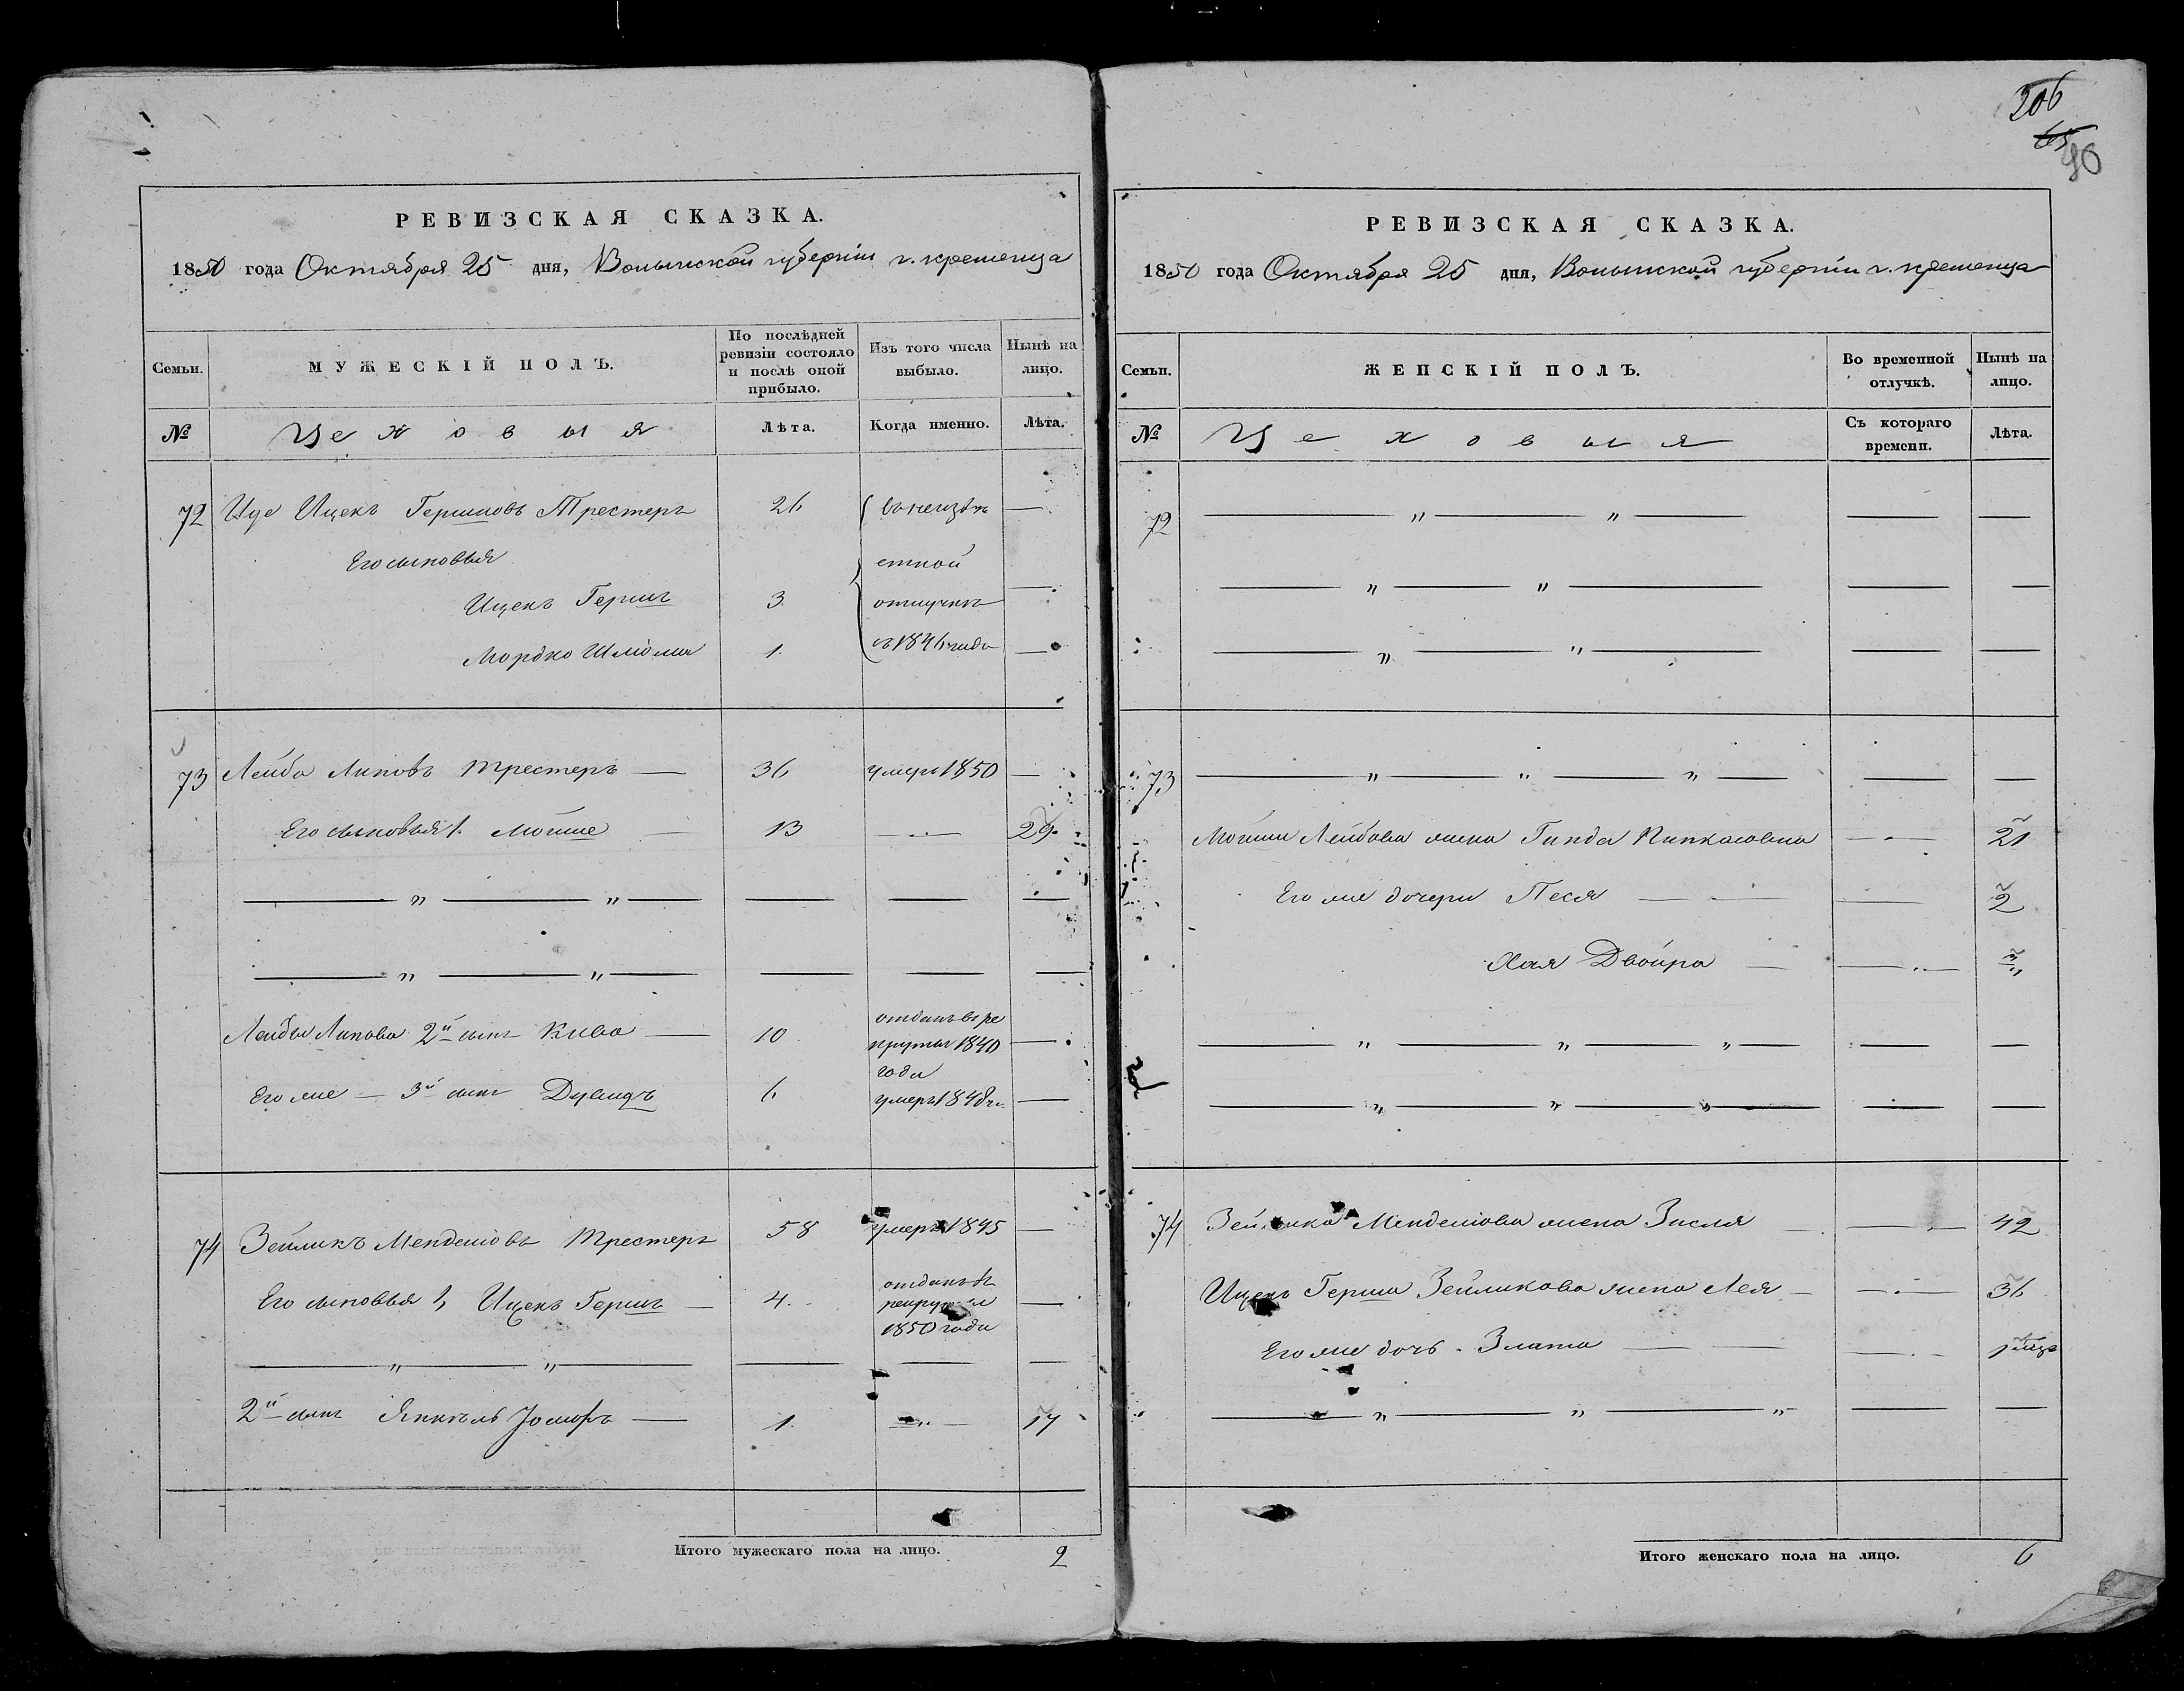 206
65
90
РЕВИЗСКАЯ СКАЗКА.
1850 года Октября 25 дня, Волынской губерніи г. кременца
Семьи.
МУЖЕСКІЙ ПОЛЪ.
По послѣдней ревизіи состояло и послѣ оной прибыло.
Изъ того числа выбыло.
Нынѣ на лицо.
№
Цеховыя
Лѣта.
Когда именно.
Лѣта.
72 Ице Ицекъ Гершковъ Трестеръ 26 въ неизвѣ —
Его сыновья стной
Ицекъ Гершъ 3 отлучкѣ —
Мордко Шлиома 1. съ 1846 года —
73 Лейба Липовъ Трестеръ — 36 умеръ 1850 —
Его сыновья 1. Мойше — 13 — 29.
— „ — „ — — — —
— „ — „ — — — —
Лейбы Липова 2й сынъ Кива — 10 отданъ въ ре
круты 1840 —
года
Его же — 3й сынъ Дувидъ 6 умеръ 1848 г. —
74 Зейликъ Менделіовъ Трестеръ 58 умеръ 1845 —
Его сыновья 1, Ицекъ Гершъ — 4. отданъ въ
рекруты —
1850 года
— „ — „ — — —
2й сынъ Янкель — 1. — 17
Итого мужескаго пола на лицо. 2
РЕВИЗСКАЯ СКАЗКА.
1850 года Октября 25 дня, Волынской губерніи г. кременца
Семьи.
ЖЕНСКІЙ ПОЛЪ.
Во временной отлучкѣ.
Нынѣ на лицо.
№
Цеховыя
Съ котораго времени.
Лѣта.
72 — „ — „ — — —
— „ — „ — — —
— „ — „ — — —
73 — „ — „ — „ — — —
Мойши Лейбова жена Гинда Пинкасовна — 21
Его же дочери Песя — — 2
Хая Двойра — —
— „ — „ — „ — — —
— „ — „ — „ — — —
74 Зейлика Менделіова жена Зисля — 42
Ицекъ Герша Зейликова жена Лея — — 36
Его же дочь . Злата — —
— „ — „ — „ — — —
Итого женскаго пола на лицо. 6